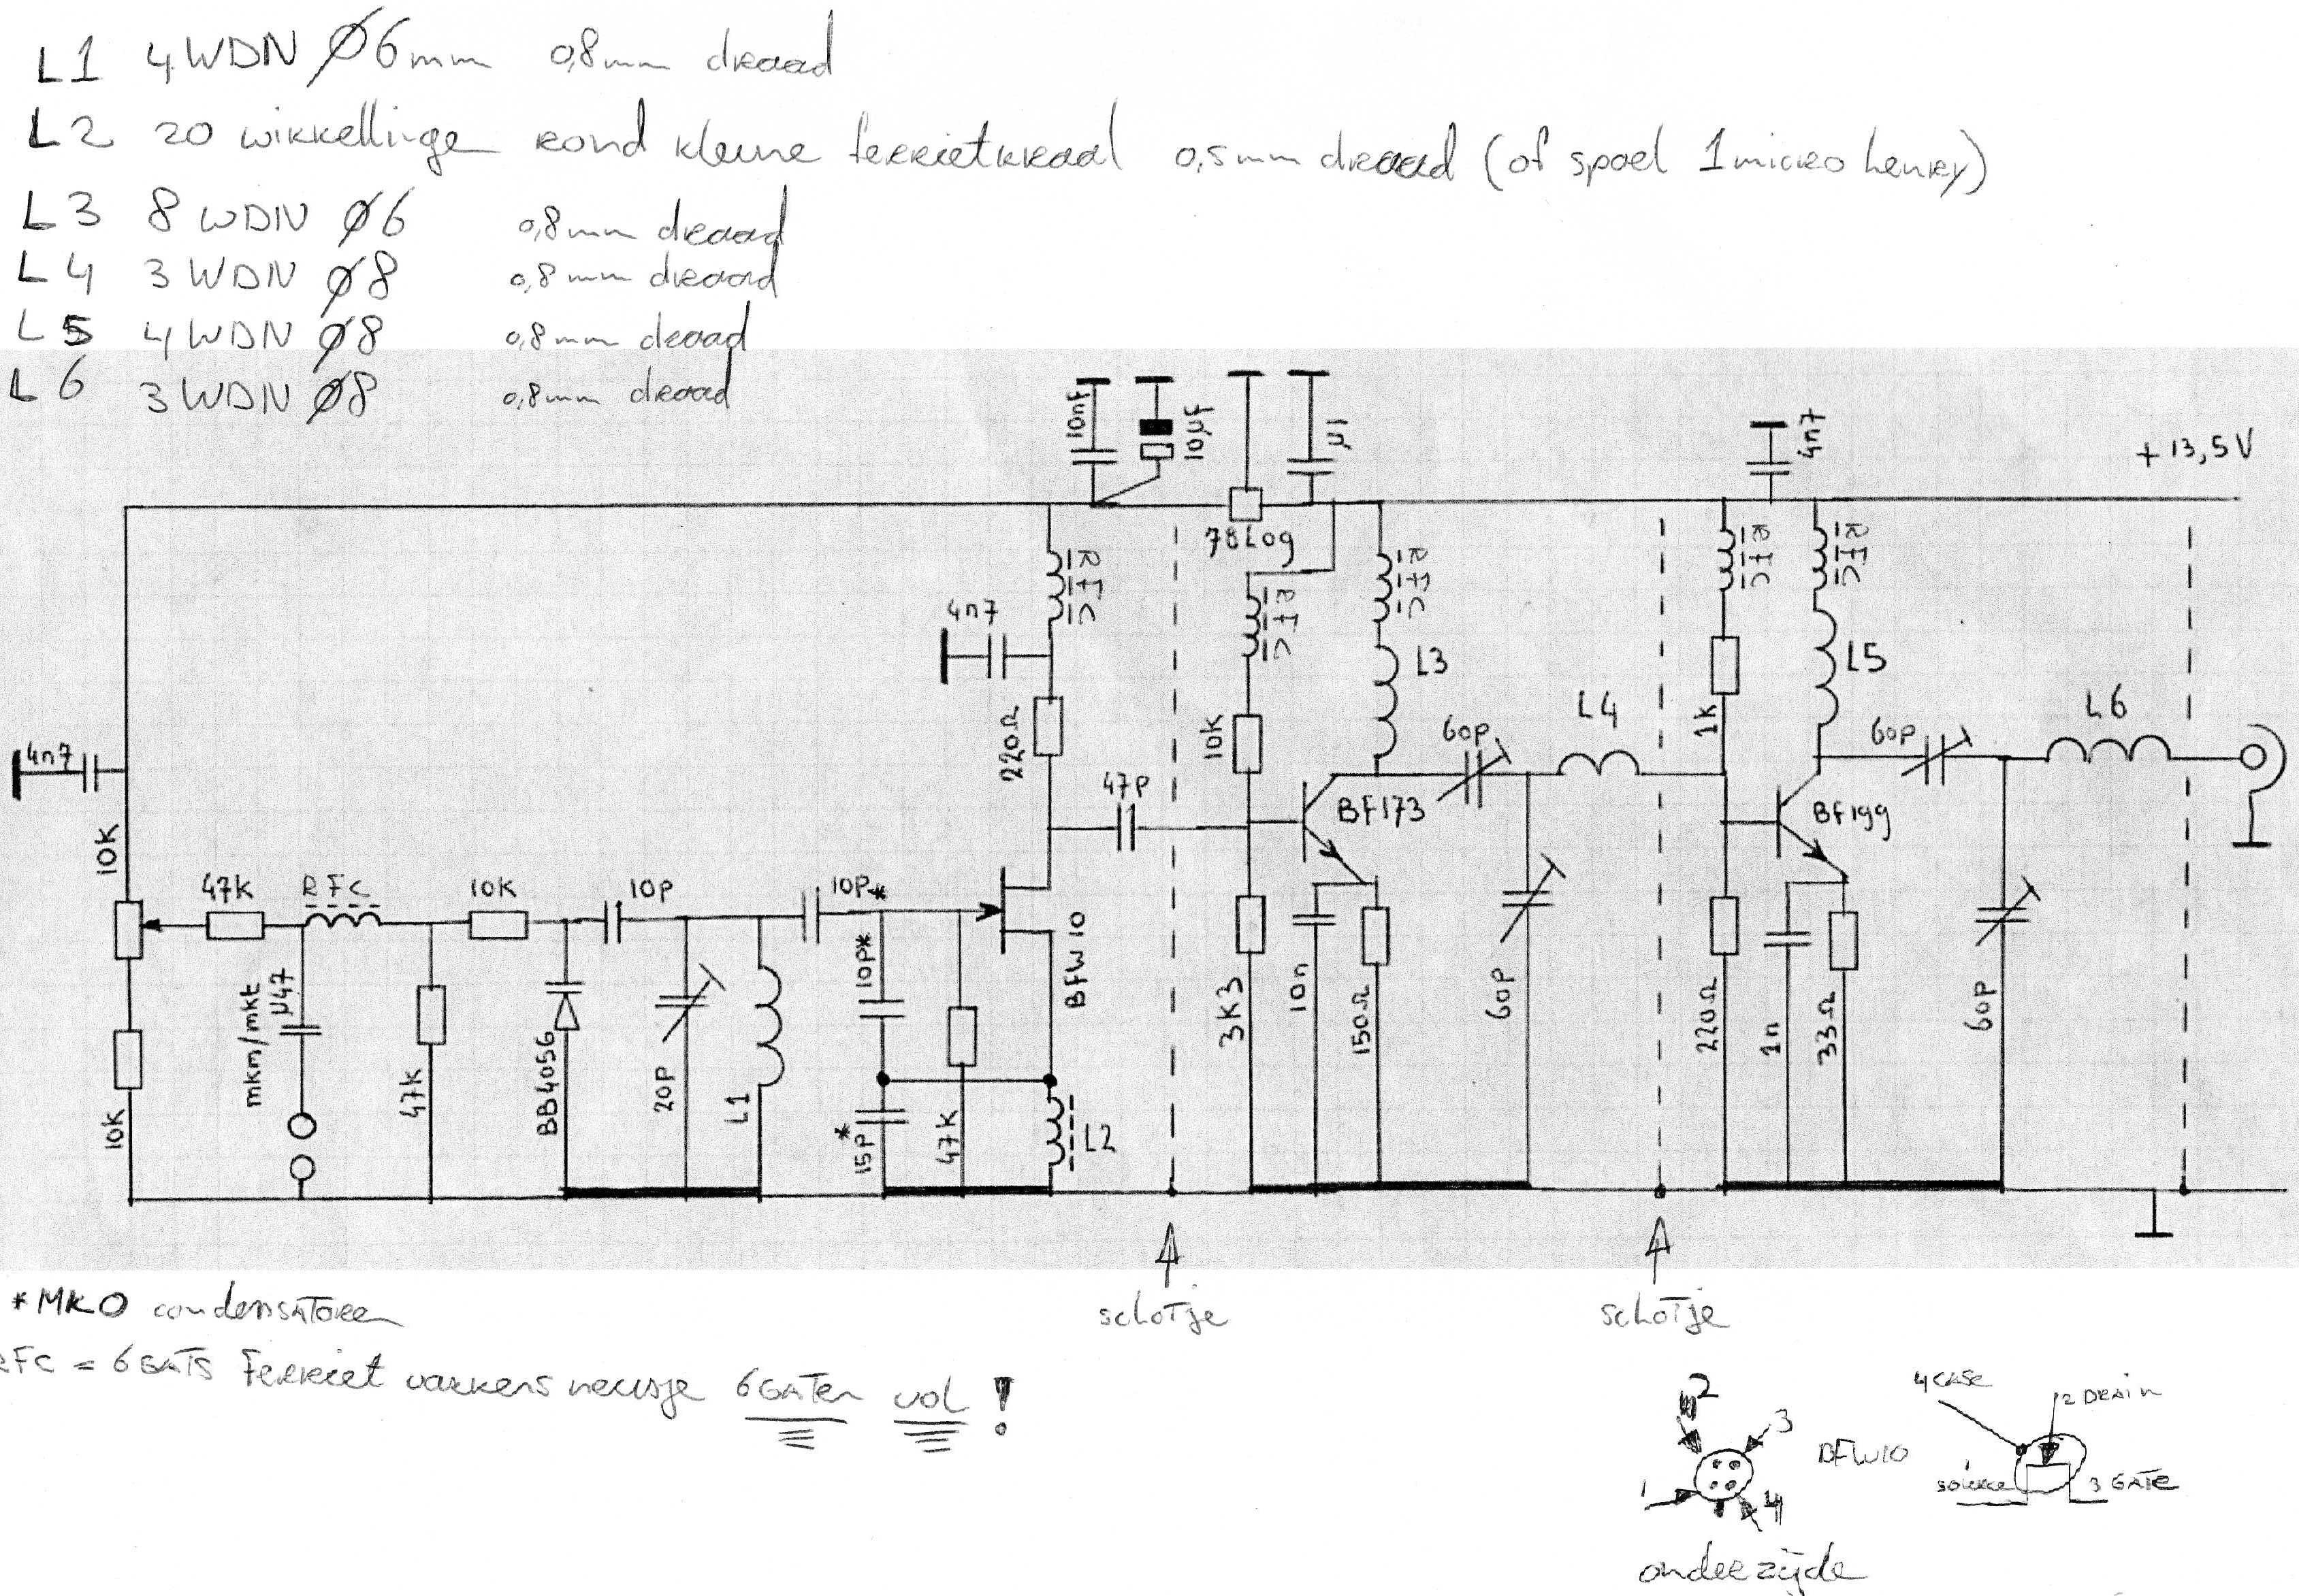 L1 4WDN Ø6mm 0,8mm draad
L2 20 wikkellinge rond kleine ferrietkraal 0,5mm draad (of spoel 1micro henry)
L3 8 WDN Ø6 0,8mm draad
L4 3 WDN Ø8 0,8mm draad
L5 4WDN Ø8 0,8mm draad
L6 3WDN Ø8 0,8mm draad
10nF
10µF
µ1
4n7
+13,5V
78L09
RFC
RFC
RFC
RFC
RFC
4n7
L3
L5
220Ω
10K
1k
L4
L6
60p
60p
4n7
47P
BF173
BF199
10K
47K
RFC
10K
10P
10P*
BFW10
10P*
mkm/mkt
µ47
47K
BB405G
20P
L1
15P*
47K
L2
3K3
10n
150Ω
60P
220Ω
1n
33Ω
60P
10K
*MKO condensatoren
RFC = 6 GATS Ferriet varkensneusje 6GATen vol!
schotje
schotje
2
3
1
4
BFW10
4 CASE
2 DRAIN
1 source
3 GATE
onderzijde